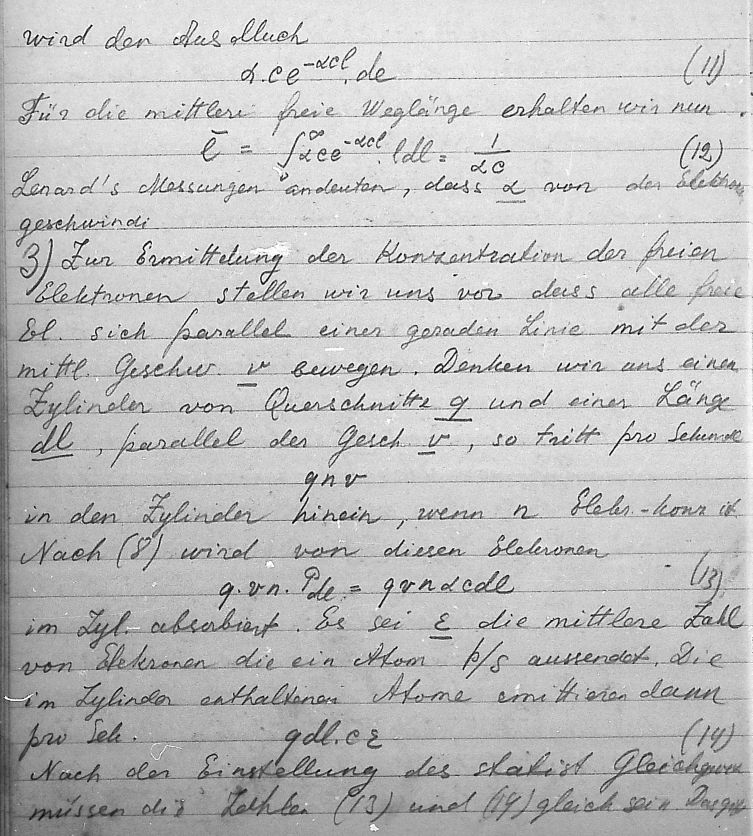 wird der Ausdruck
α.ce^-αcl.dl (11)
Für die mittlere freie Weglänge erhalten wir nun
l̄ = ∫^∞ αce^-αcl.ldl = 1/αc (12)
Lenard's Messungen andeuten, dass α von der Elektron
geschwindi
3) Zur Ermittelung der Konzentration der freien
Elektronen stellen wir uns vor dass alle freie
El. sich parallel einer geraden Linie mit der
mittl. Geschw. v bewegen. Denken wir uns einen
Zylinder von Querschnitte q und einer Länge
dl, parallel der Gesch. v, so tritt pro Sekunde
qnv
in den Zylinder hinein, wenn n Elekr.-konz ist
Nach (8) wird von diesen Elekronen
q.vn.Pdl = qvnαcdl (13)
im Zyl. absorbiert. Es sei ε die mittlere Zahl
von Elekronen die ein Atom p/s aussendet. Die
im Zylinder enthaltenen Atome emittieren dann
pro Sek. qdl.cε (14)
Nach der Einstellung des statist
müssen die (13) und (14) gleich sein